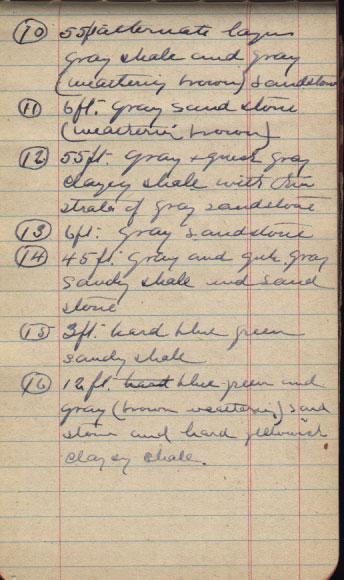 (10) 55ft alternate layers
gray shale and gray
(weathering brown) sandstone
(11) 6ft. gray sand stone
(weatherin brown)
(12) 55ft. gray + grnish gray
clayey shale with thin
strata of gray sandstone
(13) 6ft. gray sandstone
(14) 45ft. gray and grh. gray
sandy shale and sand
stone
(15) 3ft. hard blue green
sandy shale
(16) 12ft. hard blue green and
gray (brown weathering) sand
stone and hard yellowish
clayey shale.